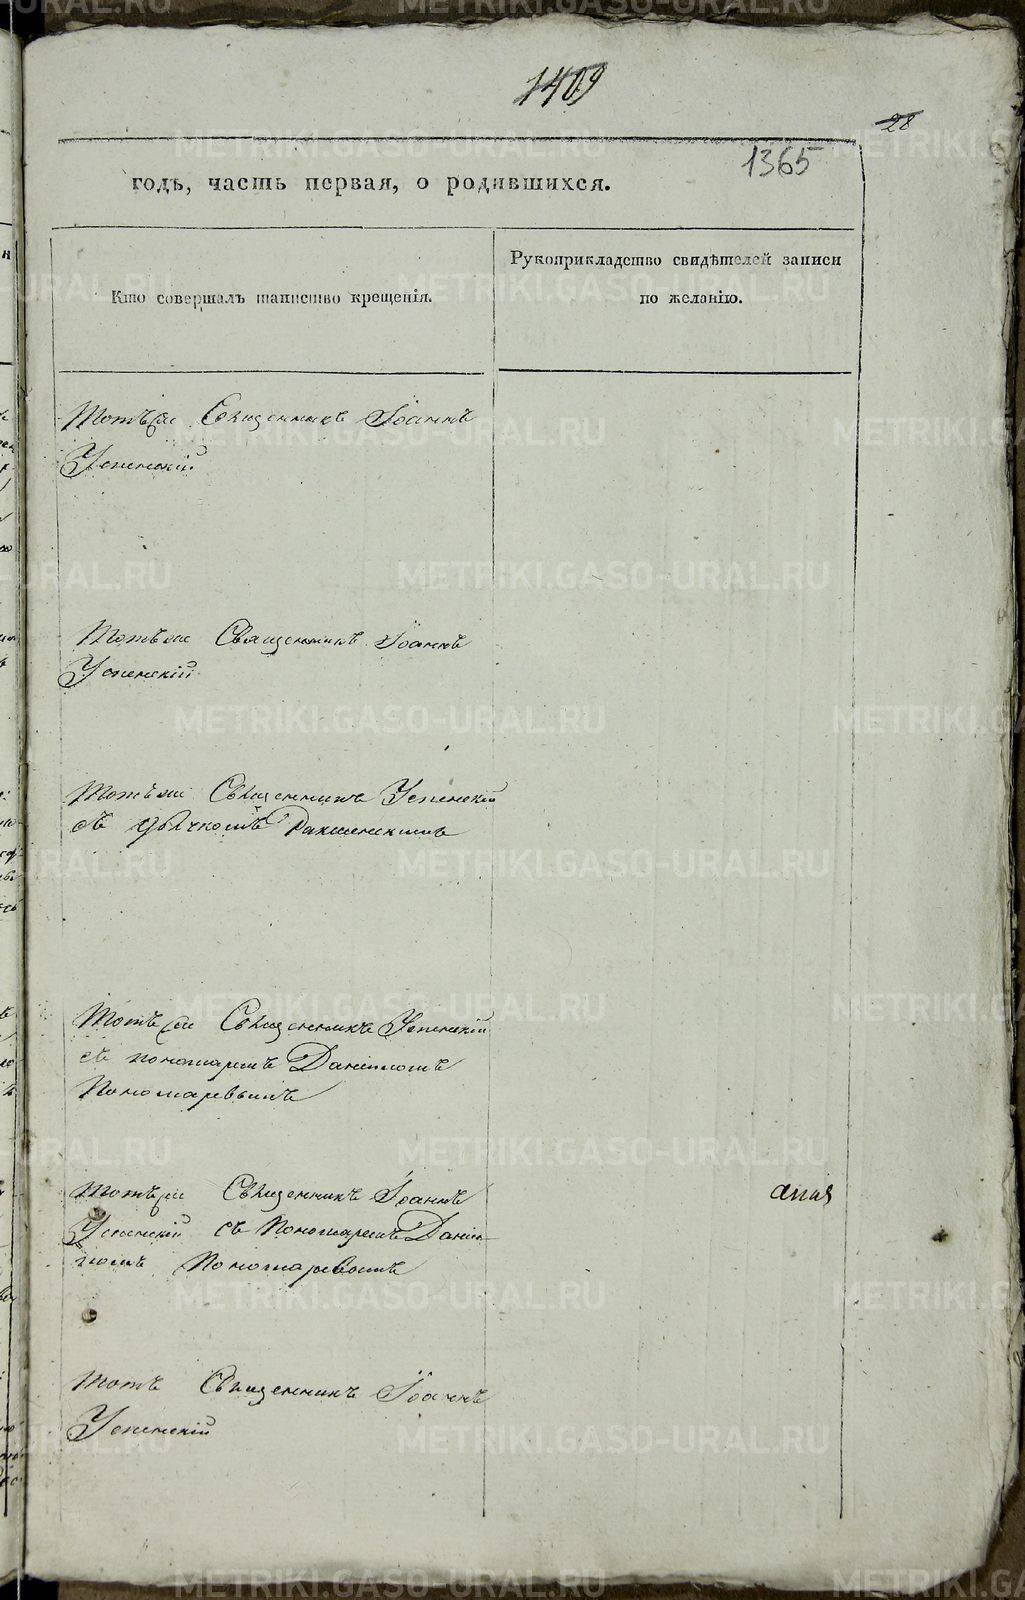 1409
28
1365
годъ, часть первая, о родившихся.
Кто совершалъ таинство крещенія.
Рукоприкладство свидѣтелей записи
по желанію.
Тотъ же Священникъ Іоаннъ
Успенскій
Тотъ же Священникъ Іоаннъ
Успенскій
Тотъ же Священникъ Успенскій
съ дьячкомъ
Тотъ же Священникъ Успенскій
съ пономаремъ Даніиломъ
Пономаревымъ
Тотъ же Священникъ Іоаннъ
Успенскій съ Пономаремъ Даніи-
ломъ Пономаревымъ
Тотъ Священникъ Іоаннъ
Успенскій
METRIKI.GASO-URAL.RU